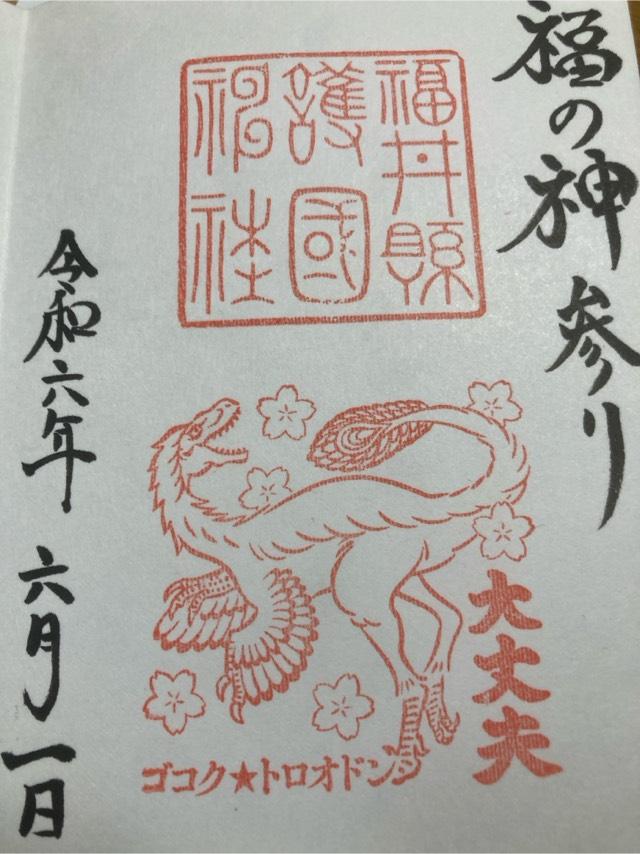 福の神参り
福井縣
護國
神社
大丈夫
ゴコク★トロオドン
令和六年 六月一日